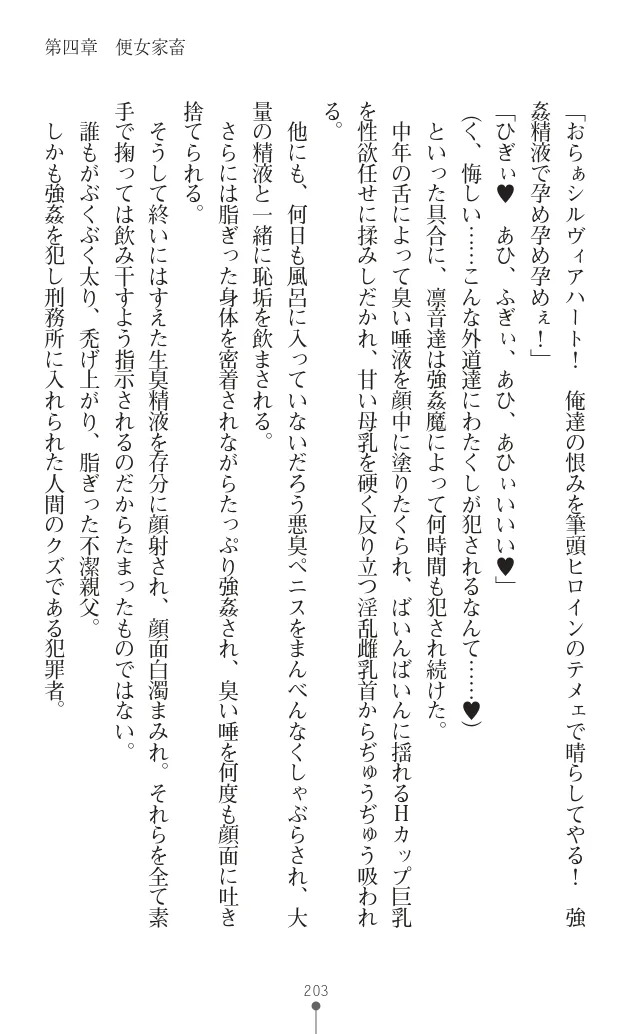 第四章　便女家畜
「おらぁシルヴィアハート！　俺達の恨みを筆頭ヒロインのテメェで晴らしてやる！　強
姦精液で孕め孕め孕めぇ！」
「ひぎぃ♥　あひ、ふぎぃ、あひ、あひぃいいい♥」
（く、悔しい……こんな外道達にわたくしが犯されるなんて……♥）
といった具合に、凛音達は強姦魔によって何時間も犯され続けた。
中年の舌によって臭い唾液を顔中に塗りたくられ、ばいんばいんに揺れるHカップ巨乳
を性欲任せに揉みしだかれ、甘い母乳を硬く反り立つ淫乱雌乳首からぢゅうぢゅう吸われ
る。
他にも、何日も風呂に入っていないだろう悪臭ペニスをまんべんなくしゃぶらされ、大
量の精液と一緒に恥垢を飲まされる。
さらには脂ぎった身体を密着されながらたっぷり強姦され、臭い唾を何度も顔面に吐き
捨てられる。
そうして終いにはすえた生臭精液を存分に顔射され、顔面白濁まみれ。それらを全て素
手で掬っては飲み干すよう指示されるのだからたまったものではない。
誰もがぶくぶく太り、禿げ上がり、脂ぎった不潔親父。
しかも強姦を犯し刑務所に入れられた人間のクズである犯罪者。
203